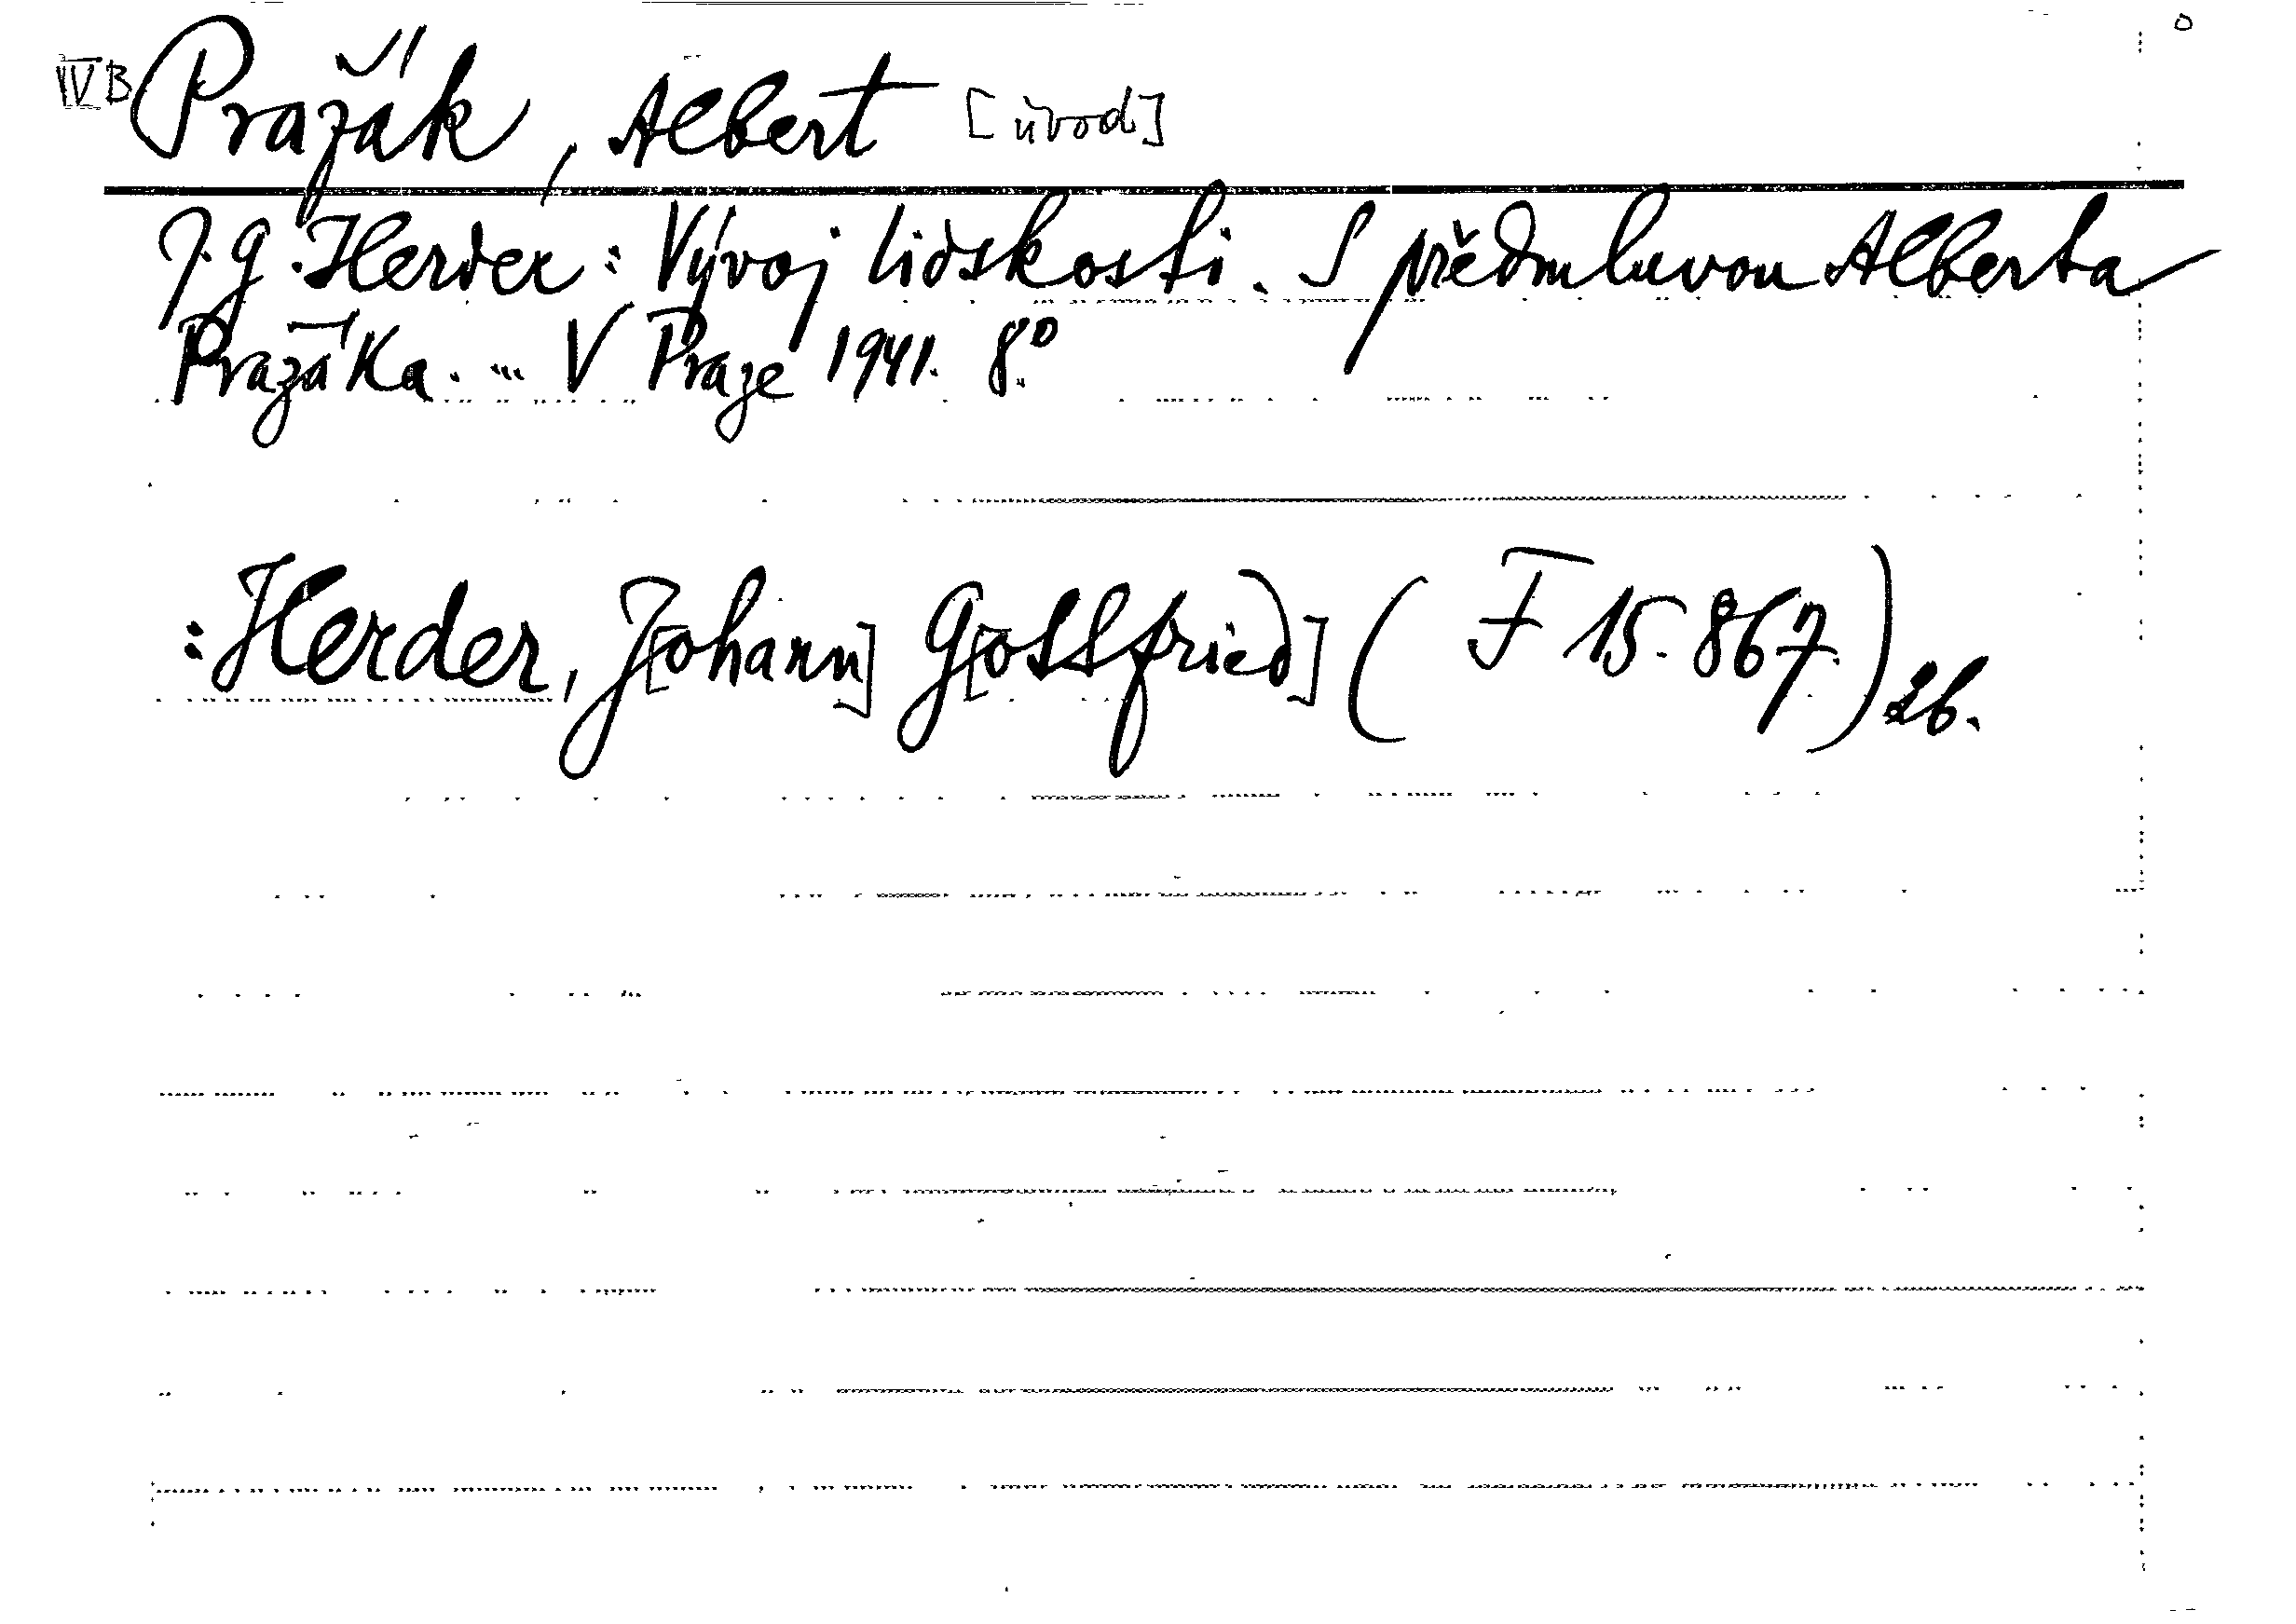 IVB Pražák, Albert [úvod]
J. G. Herder: Vývoj lidskosti. S předmluvou Alberta
Pražáka. ... V Praze 1941. 8°.
: Herder, J[ohann] G[ottfried] (F 15.867.)